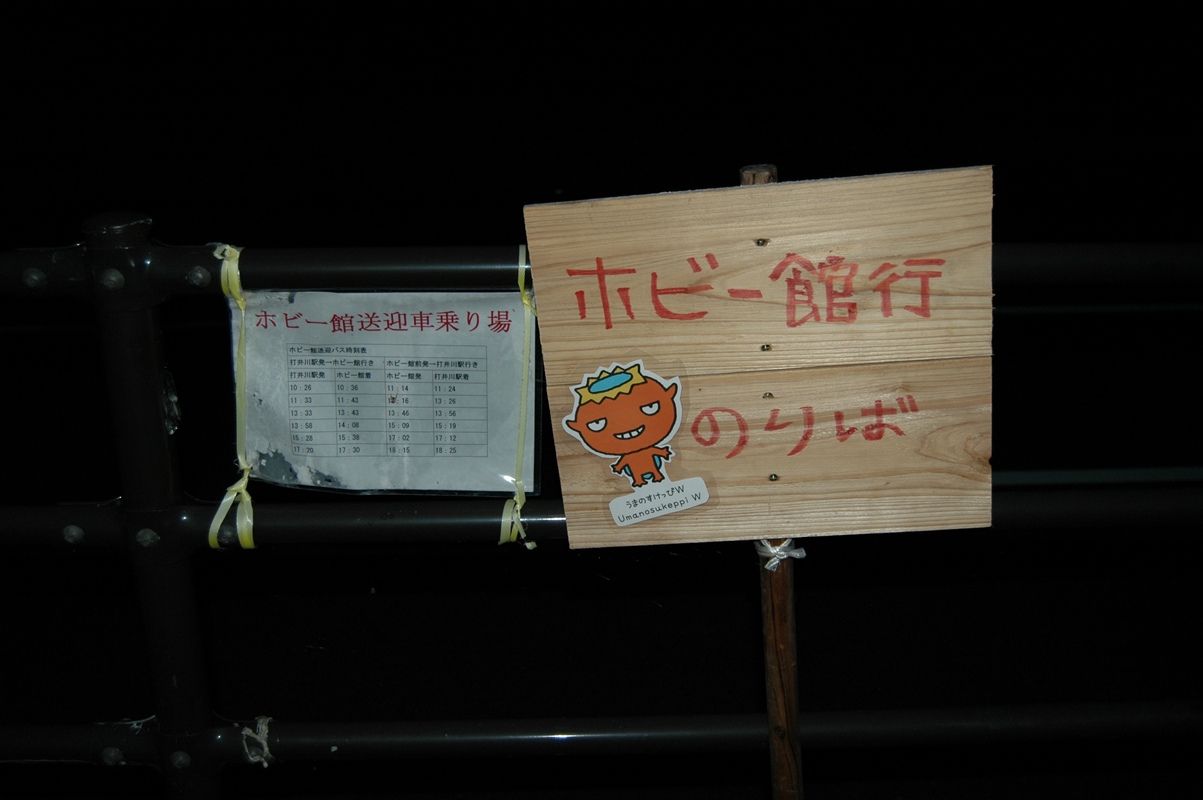 ホビー館送迎車乗り場
ホビー館送迎バス時刻表
打井川駅発→ホビー館行き ホビー館前発→打井川駅行き
打井川駅発 ホビー館着 ホビー館発 打井川駅着
10:26 10:36 11:14 11:24
11:33 11:43 16 13:26
13:33 13:43 13:46 13:56
13:58 14:08 15:09 15:19
15:28 15:38 17:02 17:12
17:20 17:30 18:15 18:25
ホビー館行
のりば
うまのすけっぴW
Umanosukeppi W